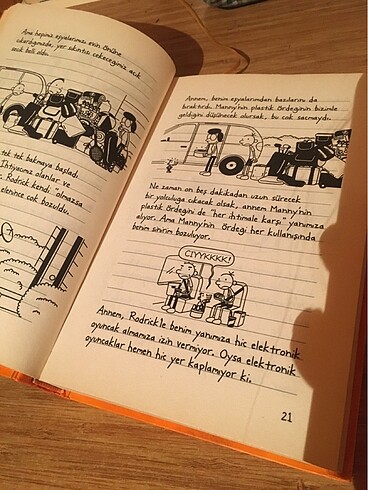 Ama hepimiz eşyalarımızı evin önüne
çıkardığımızda, yer sıkıntısı çekeceğimiz açık
seçik belli oldu.
tek tek bakmaya başladı
İhtiyacımız olanlar ve
Rodrick kendi
elenince çok bozuldu.
Annem, benim eşyalarımdan bazılarını da
bıraktırdı. Manny'nin plastik ördeğinin bizimle
geldiğini düşünecek olursak, bu çok saçmaydı.
Ne zaman on beş dakikadan uzun sürecek
bir yolculuğa çıkacak olsak, annem Manny'nin
plastik ördeğini de "her ihtimale karşı" yanımıza
alıyor. Ama Manny'nin ördeği her kullanışında
benim sinirim bozuluyor.
CIYYKKKK!
Annem, Rodrick'le benim yanımıza hiç elektronik
oyuncak almamıza izin vermiyor. Oysa elektronik
oyuncaklar hemen hiç yer kaplamıyor ki.
21